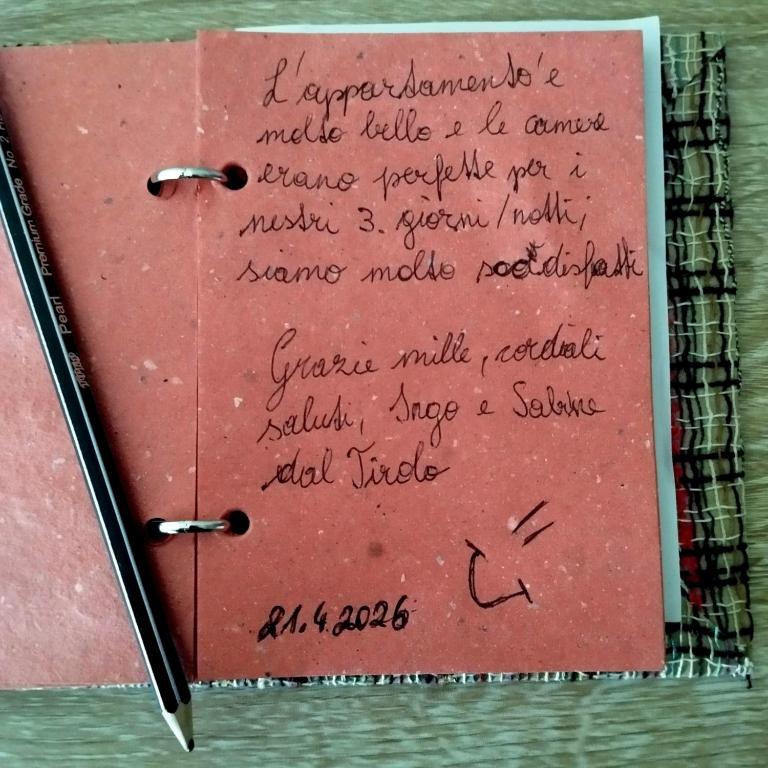 L'appartamento'e
molto bello e le camere
erano perfette per i
nostri 3. giorni/notti,
siamo molto soddisfatti
Grazie mille, cordiali
saluti, Ingo e Sabine
dal Tirolo
21.4.2026
Pearl Premium Grade No. 2